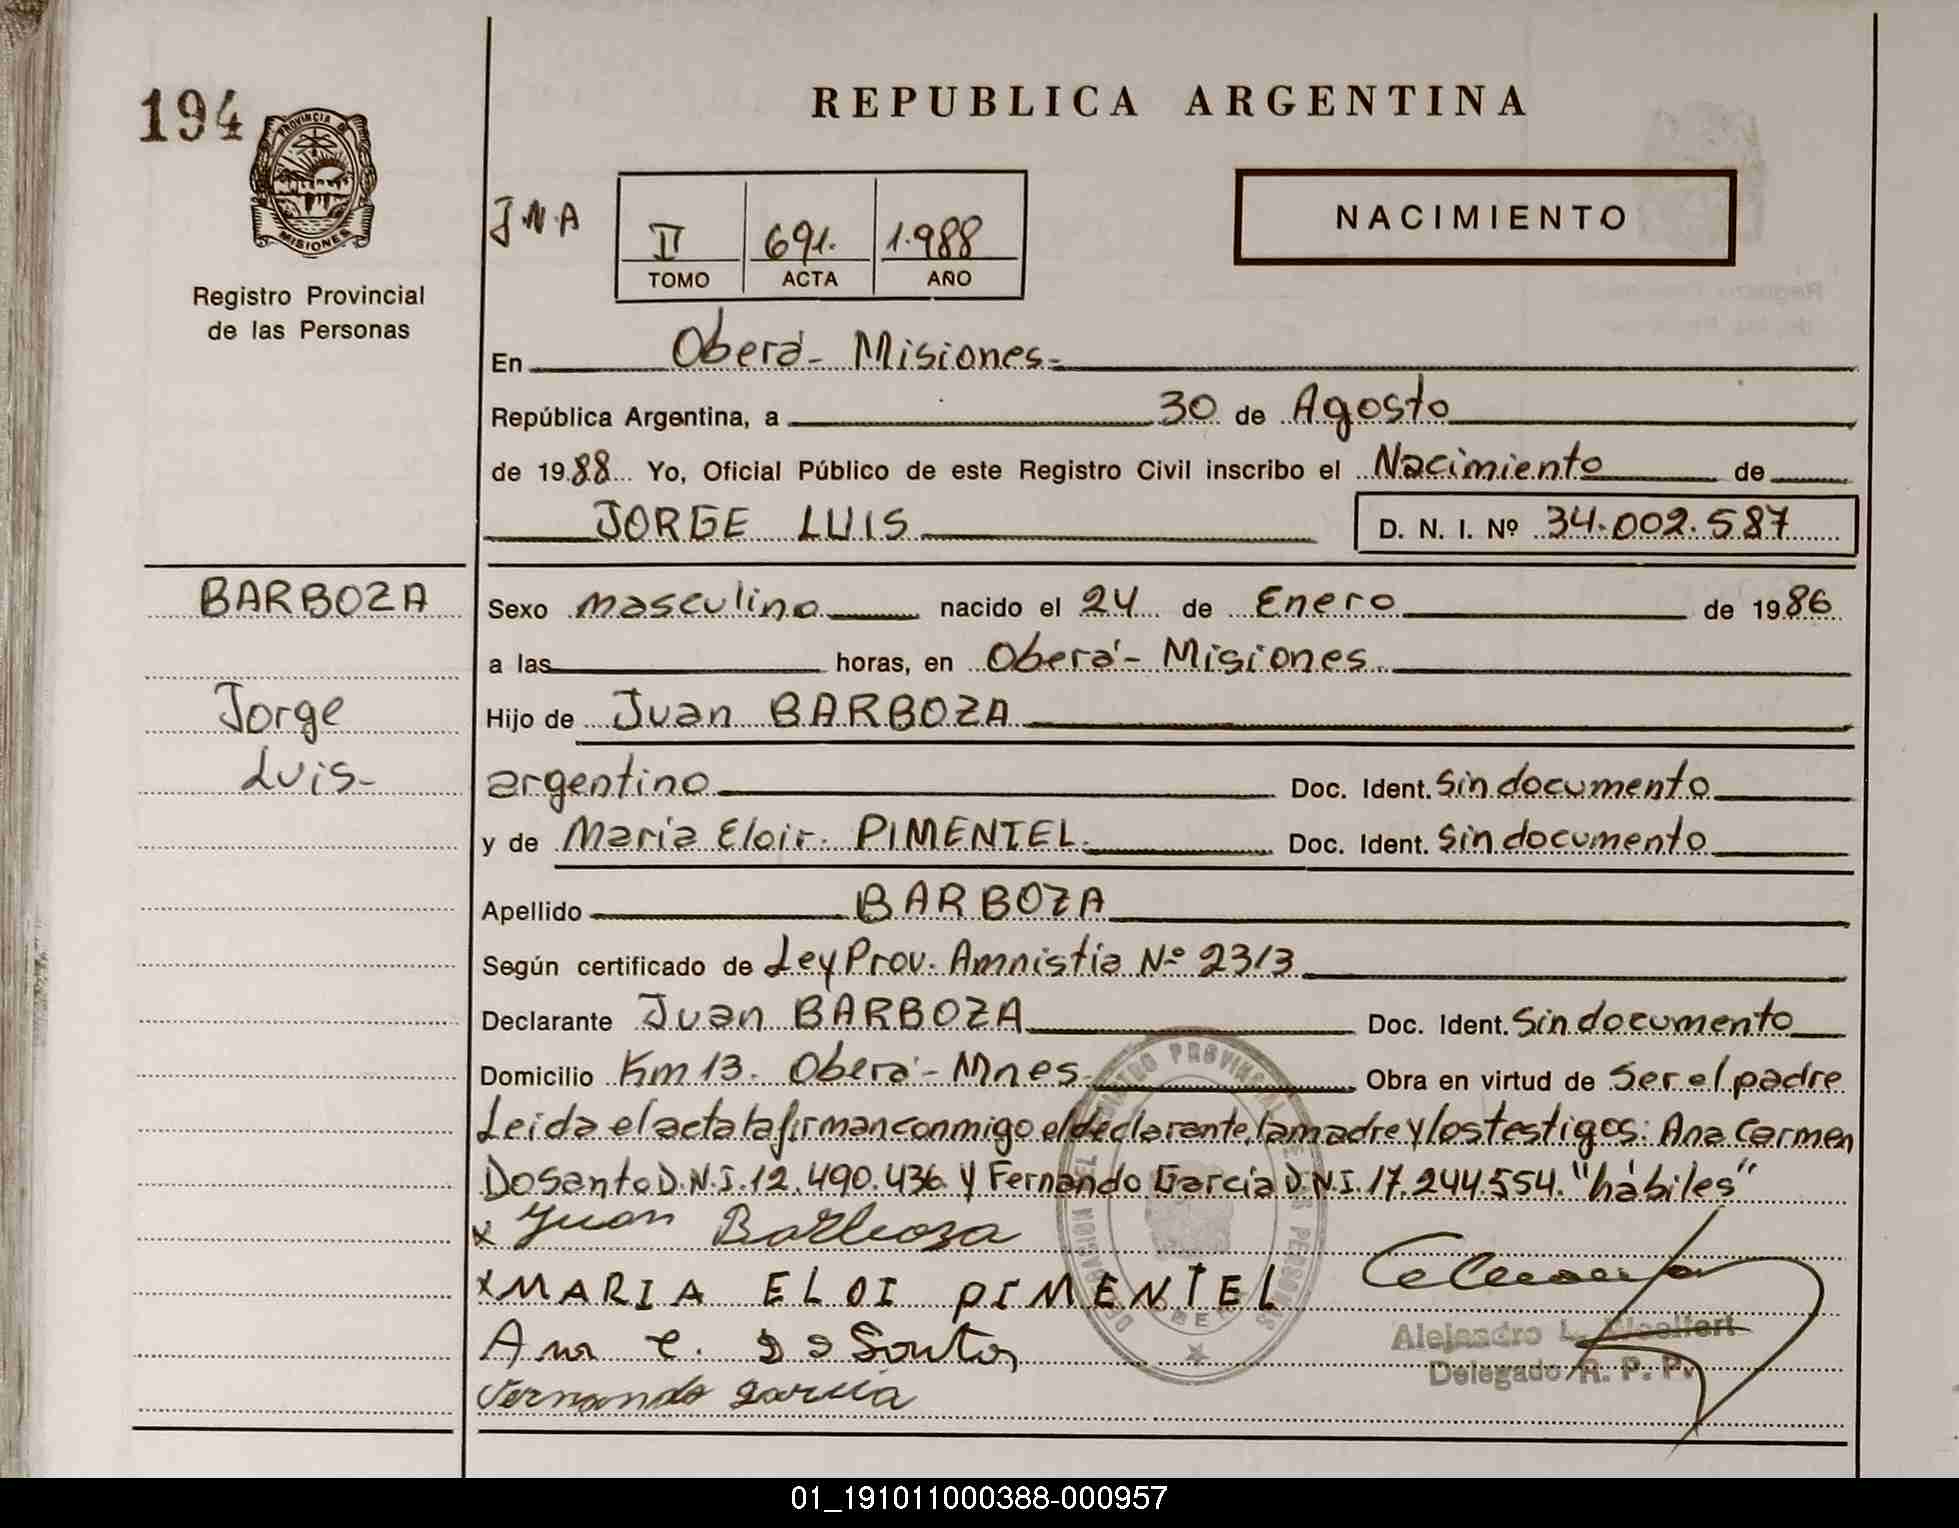 194
PROVINCIA DE
MISIONES
Registro Provincial
de las Personas
REPUBLICA ARGENTINA
J.N.A
II 691. 1.988
TOMO ACTA AÑO
NACIMIENTO
En Oberá- Misiones-
República Argentina, a 30 de Agosto
de 1988 Yo, Oficial Público de este Registro Civil inscribo el Nacimiento de
JORGE LUIS D. N. I. Nº 34.002.587
BARBOZA
Jorge
Luis-
Sexo masculino nacido el 24 de Enero de 1986
a las horas, en Oberá- Misiones
Hijo de Juan BARBOZA
argentino Doc. Ident. Sin documento
y de María Eloir. PIMENTEL. Doc. Ident. Sin documento
Apellido BARBOZA
Según certificado de Ley Prov. Amnistía Nº 2313
Declarante Juan BARBOZA Doc. Ident. Sin documento
Domicilio Km 13. Oberá- Mnes. Obra en virtud de Ser el padre
Leida el acta la firman conmigo el declarante, la madre y los testigos: Ana Carmen
DoSanto D.N.I. 12.490.436 y Fernando García D.N.I. 17.244.554. "hábiles"
x Juan Barboza
x MARIA ELOI PIMENTEL
Ana C. Do Santos
Fernando García
DELEGACION DEL REGISTRO PROVINCIAL DE LAS PERSONAS
Alejandro L. Woelfert
Delegado R. P. P.
01_191011000388-000957